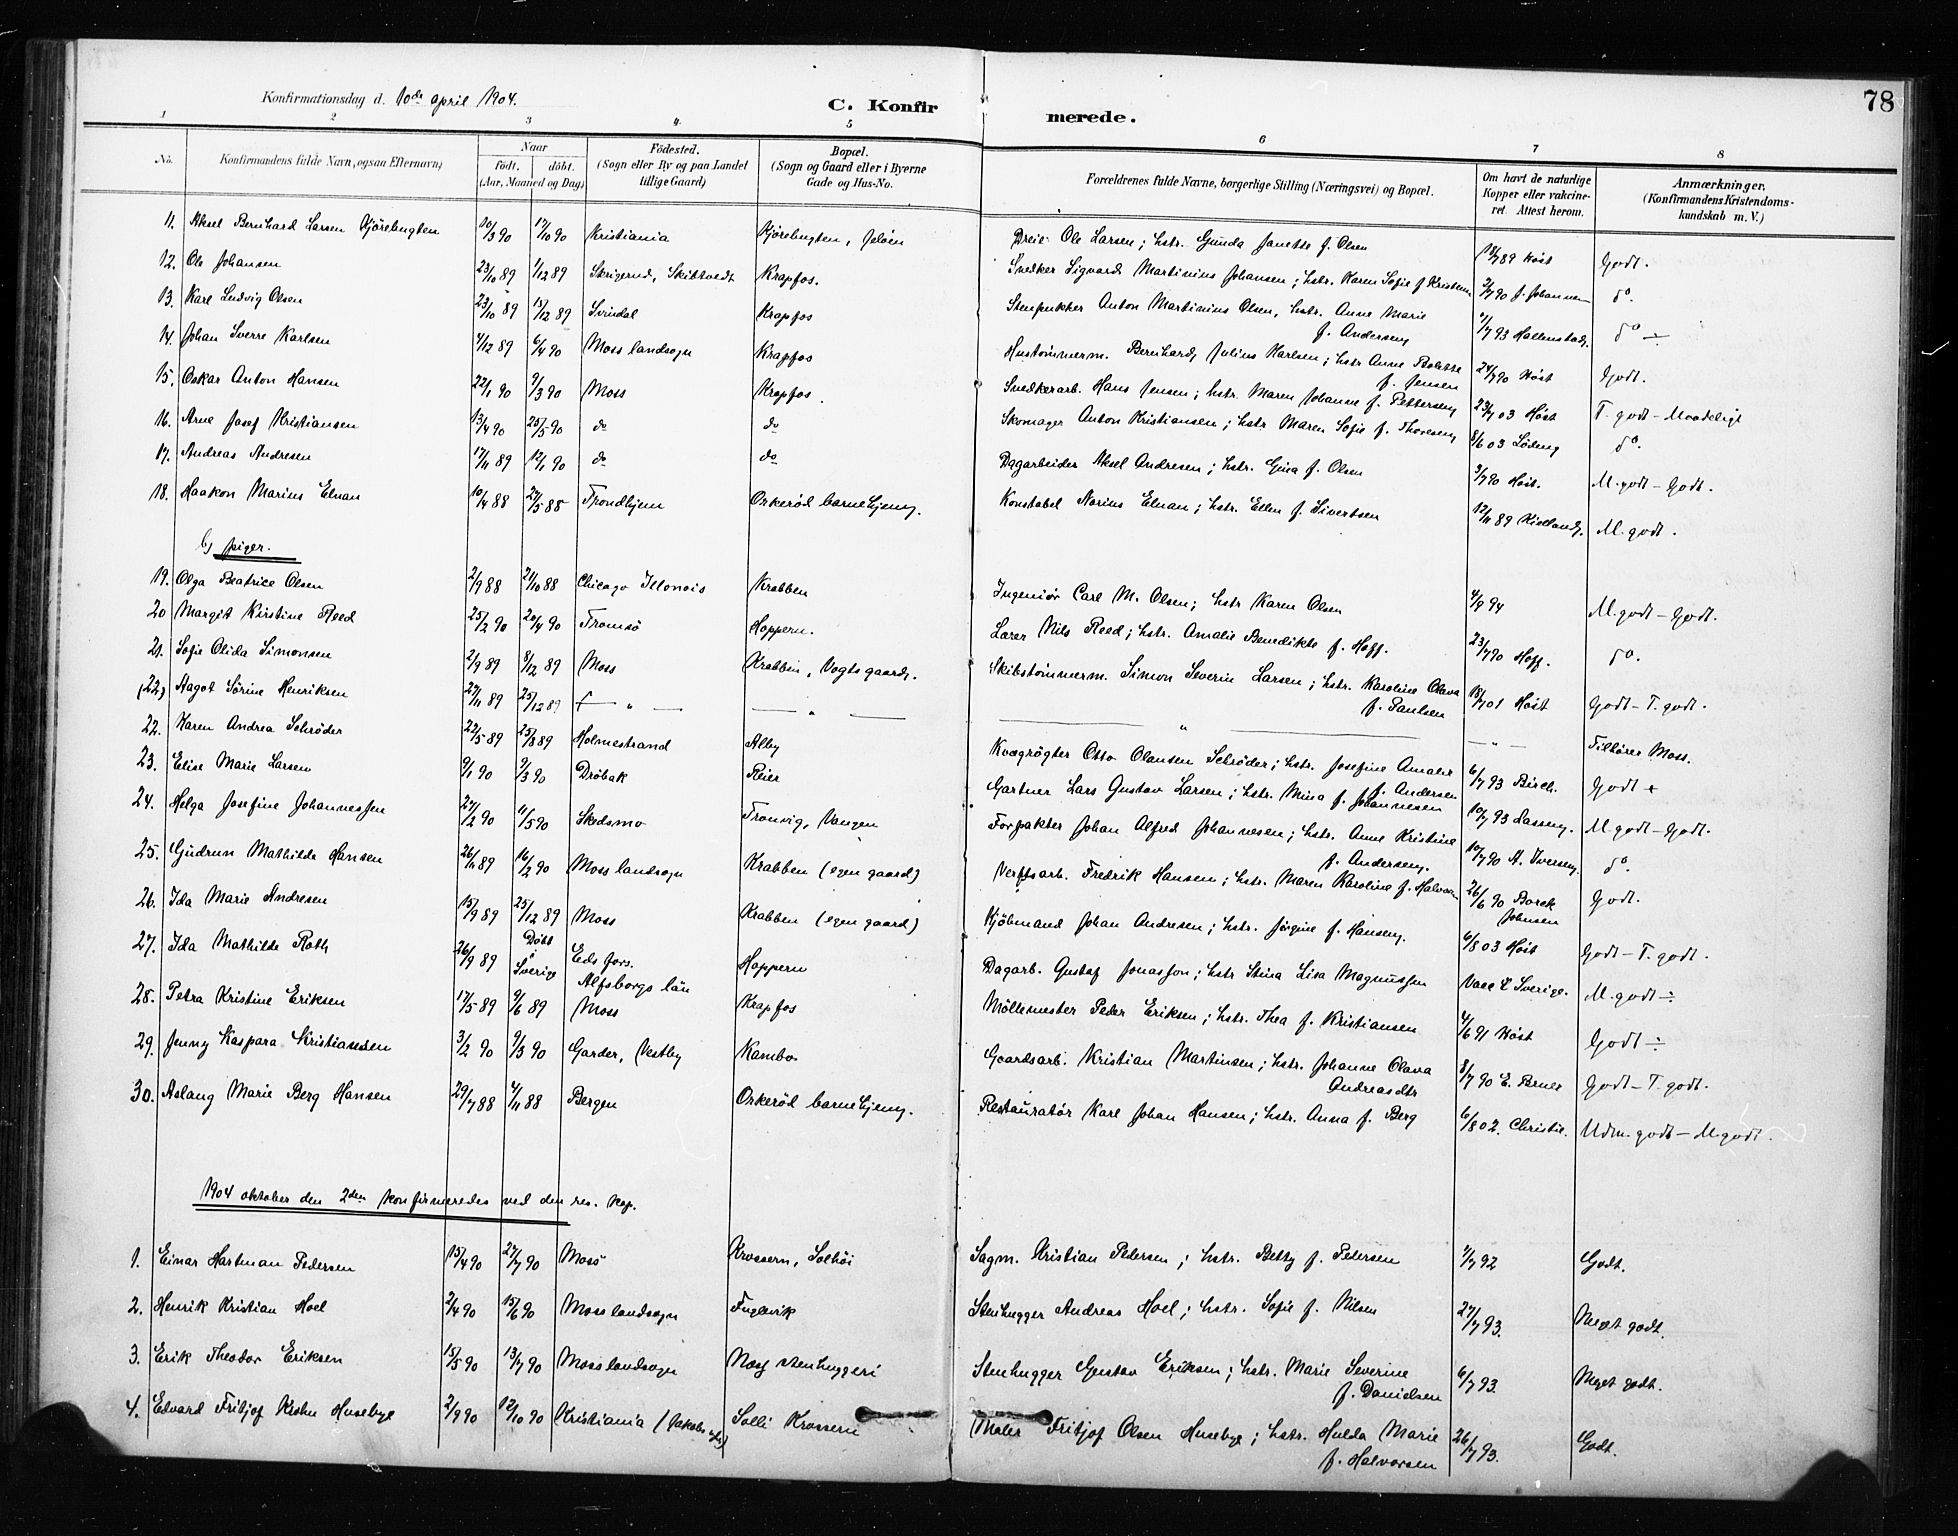 78
Konfirmationsdag d. 10de april 1904.
C. Konfirmerede.
1 2 3 4. 5 6 7 8
No. Konfirmandens fulde Navn, ogsaa Efternavn) Naar født. døbt. (Aar, Maaned og Dag) Fødested. (Sogn eller By og paa Landet tillige Gaard) Bopæl. (Sogn og Gaard eller i Byerne Gade og Hus-No. Forældrenes fulde Navne, borgerlige Stilling (Næringsvei) og Bopæl. Om havt de naturlige Kopper eller vakcineret. Attest herom. Anmærkninger. (Konfirmandens Kristendomskundskab m. V.)
11. Aksel Bernhard Larsen Kjørebugten 10/3 90 17/10 90 Kristiania Kjørebugten, Jeløen Dreier Ole Larsen; hstr. Gunda Janette f. Olsen 12/7 89 Høst Godt.
12. Ole Johansen 23/10 89 1/12 89 Skrigerud, Skibtvedt Krapfos. Snedker Sigvard Martinius Johansen; hstr. Karen Sofie f Kristens 2/7 90 J. Johannesen do.
13. Karl Ludvig Olsen 23/10 89 15/12 89 Svindal Krapfos Stenpukker Anton Martinius Olsen, hstr. Anne Marie f. Andersen 4/7 93 Hallenstad. do ÷
14. Johan Sverre Karlsen 4/12 89 6/4 90 Moss landsogn Krapfos Hustømmerm. Bernhard Julius Karlsen; hstr Anne Bolette f. Jensen 24/7 90 Høst Godt.
15. Oskar Anton Hansen 22/1 90 9/3 90 Moss Krapfos. Snedkerarb. Hans Jensen; hstr. Maren Johanne f. Pettersen 23/7 03 Høst T. godt - Maadeligt
16. Arne Josef Kristiansen 13/4 90 25/5 90 do do Skomager Anton Kristiansen; hstr Maren Sofie f. Thoresen 8/6 03 Lødeng do.
17. Andreas Andresen 17/11 89 12/1 90 do do Dagarbeider Aksel Andresen; hstr. Gina f. Olsen 3/7 90 Høst. M. godt - Godt.
18. Haakon Marius Elnan 10/4 88 27/5 88 Trondhjem Orkerød barnehjem. Konstabel Norius Elnan; hstr. Ellen f. Sivertsen 12/11 89 Kielland. M. godt.
b) piger.
19. Olga Beatrice Olsen 2/9 88 21/10 88 Chicago Illonois Krabben Ingeniør Carl M. Olsen; hstr Karen Olsen 4/9 94 M. godt - Godt.
20 Margit Kirstine Reed 25/2 90 20/4 90 Tromsø Hoppern. Lærer Nils Reed; hstr. Amalie Benedikte f. Hoff. 23/7 90 Hoff. do.
21. Sofie Olida Simonsen 2/9 89 8/12 89 Moss Krabben, Vogts gaard. Skibstømmerm. Simon Severin Larsen; hstr. Karoline Olava f. Paulsen 18/7 01 Høst Godt - T. godt.
(22) Aagot Sørine Henriksen 27/11 89 25/12 89 — " — — " — — " — — " — Tilhører Moss.
22. Karen Andrea Schrøder 22/5 89 25/8 89 Holmestrand Alby Kvægrøgter Otto Olausen Schrøder; hstr. Josefine Amalie f. Andersen 6/7 93 Birch. Godt +
23. Elise Marie Larsen 9/1 90 9/3 90 Drøbak Reier Gartner Lars Gustav Larsen; hstr. Mina f. Johannesen 10/7 93 Lassen. M. godt - Godt.
24. Helga Josefine Johannessen 27/2 90 11/5 90 Skedsmo Tronvig, Vangen Forpakter Johan Alfred Johannesen; hstr. Anne Kristine f. Andersen. 10/7 90 A. Iversen do.
25. Gudrun Mathilde Hansen 26/11 89 16/2 90 Moss landsogn Krabben (egen gaard) Verftsarb. Fredrik Hansen; hstr. Maren Karoline f. Halvorsen 26/6 90 Borck Johnsen Godt.
26. Ida Marie Andresen 15/9 89 25/12 89 Moss Krabben (egen gaard) Kjøbmand Johan Andresen; hstr. Jørgine f. Hansen. 6/8 03 Høst Godt - T. godt.
27. Ida Mathilde Roth 26/9 89 Døbt i Sverige Eds fors. Alfsborgs län Hoppern Dagarb. Gustaf Jonasson; hstr Stina Lisa Magnussen Vacc i Sverige. M. godt ÷
28. Petra Kristine Eriksen 17/5 89 9/6 89 Moss Krapfos Møllemester Peder Eriksen; hstr. Thea f. Kristiansen 4/6 91 Høst Godt ÷
29. Jenny Kaspara Kristiansen 3/2 90 9/3 90 Garder, Vestby Kambo Gaardsarb. Kristian Martinsen; hstr. Johanne Olava Andreasdtr 8/7 90 E. Bruer Godt - T. godt.
30. Aslaug Marie Berg Hansen 29/7 88 4/11 88 Bergen Orkerød barnehjem. Restauratør Karl Johan Hansen; hstr. Anna f. Berg 6/8 02. Christie. Udm. godt - M. godt.
1904 oktober den 2den konfirmeredes ved den res. kap.
1. Einar Hartman Pedersen 15/4 90 27/7 90 Moss Krossern, Solhøi Sagm. Kristian Pedersen; hstr. Betty f. Petersen 4/7 92 Godt.
2. Henrik Kristian Hoel 2/4 90 15/6 90 Moss landsogn Fuglevik Stenhugger Andreas Hoel; hstr. Sofie f. Nilsen 27/7 93. Meget godt.
3. Erik Theodor Eriksen 15/5 90 13/7 90 Moss landsogn Næss stenhuggeri Stenhugger Gustav Eriksen; hstr. Marie Severine f. Danielsen 6/7 93. Meget godt.
4. Edvard Fritjof Krohn Husebye 2/9 90 12/10 90 Kristiania (Jakobs) Solli Krossern Maler Fritjof Olsen Husebye; hstr. Hulda Marie f. Halvorsen 26/7 93. Godt.